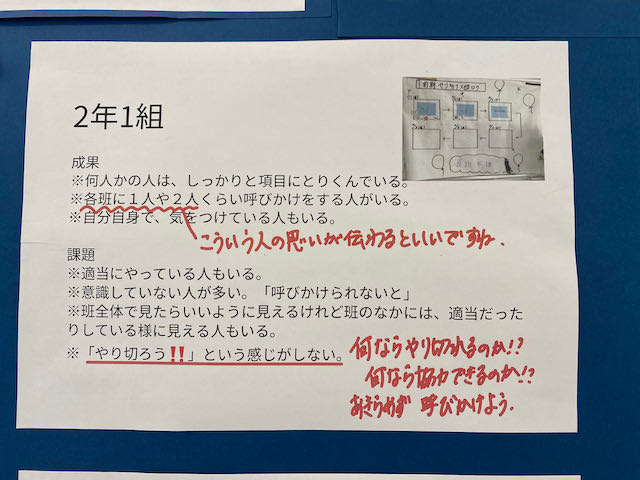 2年1組
成果
※何人かの人は、しっかりと項目にとりくんでいる。
※各班に１人や２人くらい呼びかけをする人がいる。
※自分自身で、気をつけている人もいる。
こういう人の思いが伝わるといいですね.
課題
※適当にやっている人もいる。
※意識していない人が多い。「呼びかけられないと」
※班全体で見たらいいように見えるけれど班のなかには、適当だった
りしている様に見える人もいる。
※「やり切ろう‼」という感じがしない。
何ならやり切れるのか!?
何なら協力できるのか!?
あきらめず 呼びかけよう.